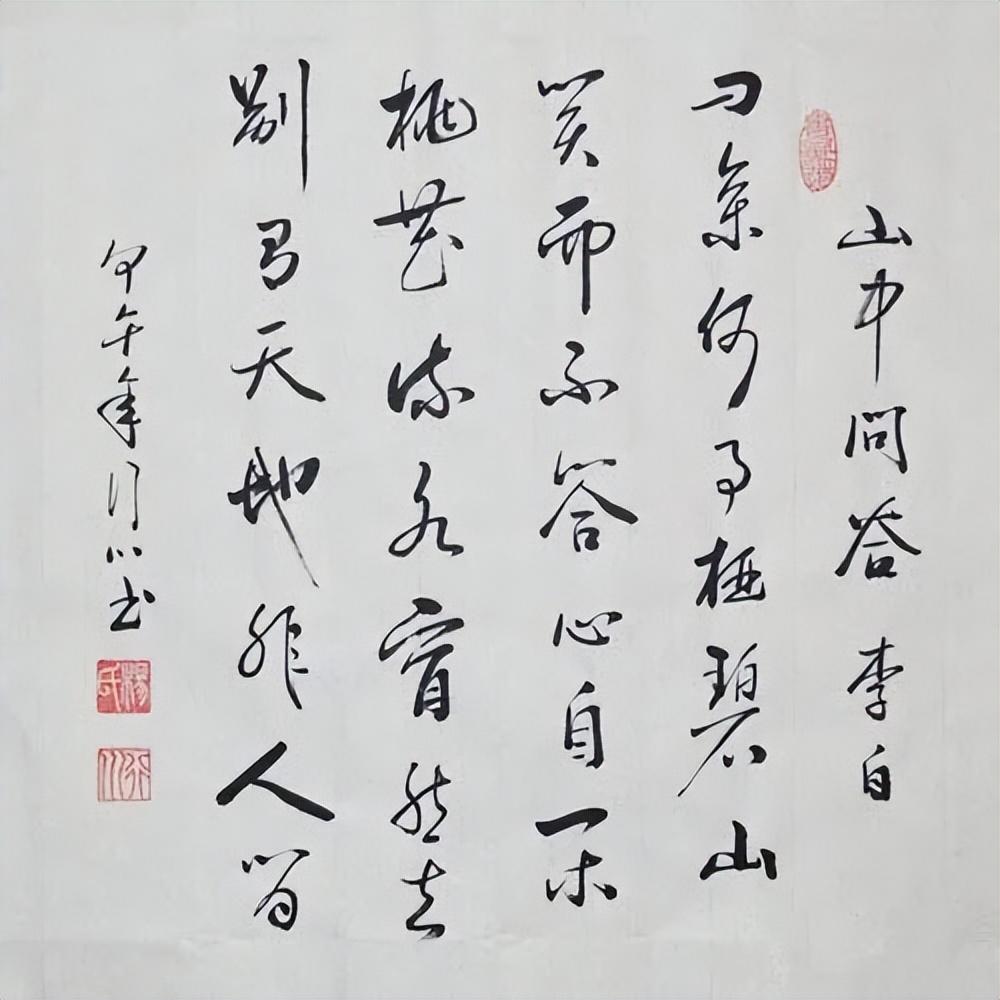 山中問答 李白
問余何事栖碧山
笑而不答心自閑
桃花流水窅然去
別有天地非人間
甲午年行书
楊氏